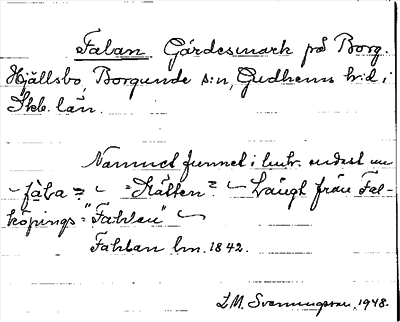 Falan Gärdesmark på Borg.
Hjällsbo, Borgunda s:n, Gudhems h:d i
Skb. län.
Namnet funnet i
~ fàla = ~ "Slätten" ~ Långt från Fal-
köpings = "Fahlan" ~
Fahlan lm. 1842.
L.M. Svanungsson, 1948.